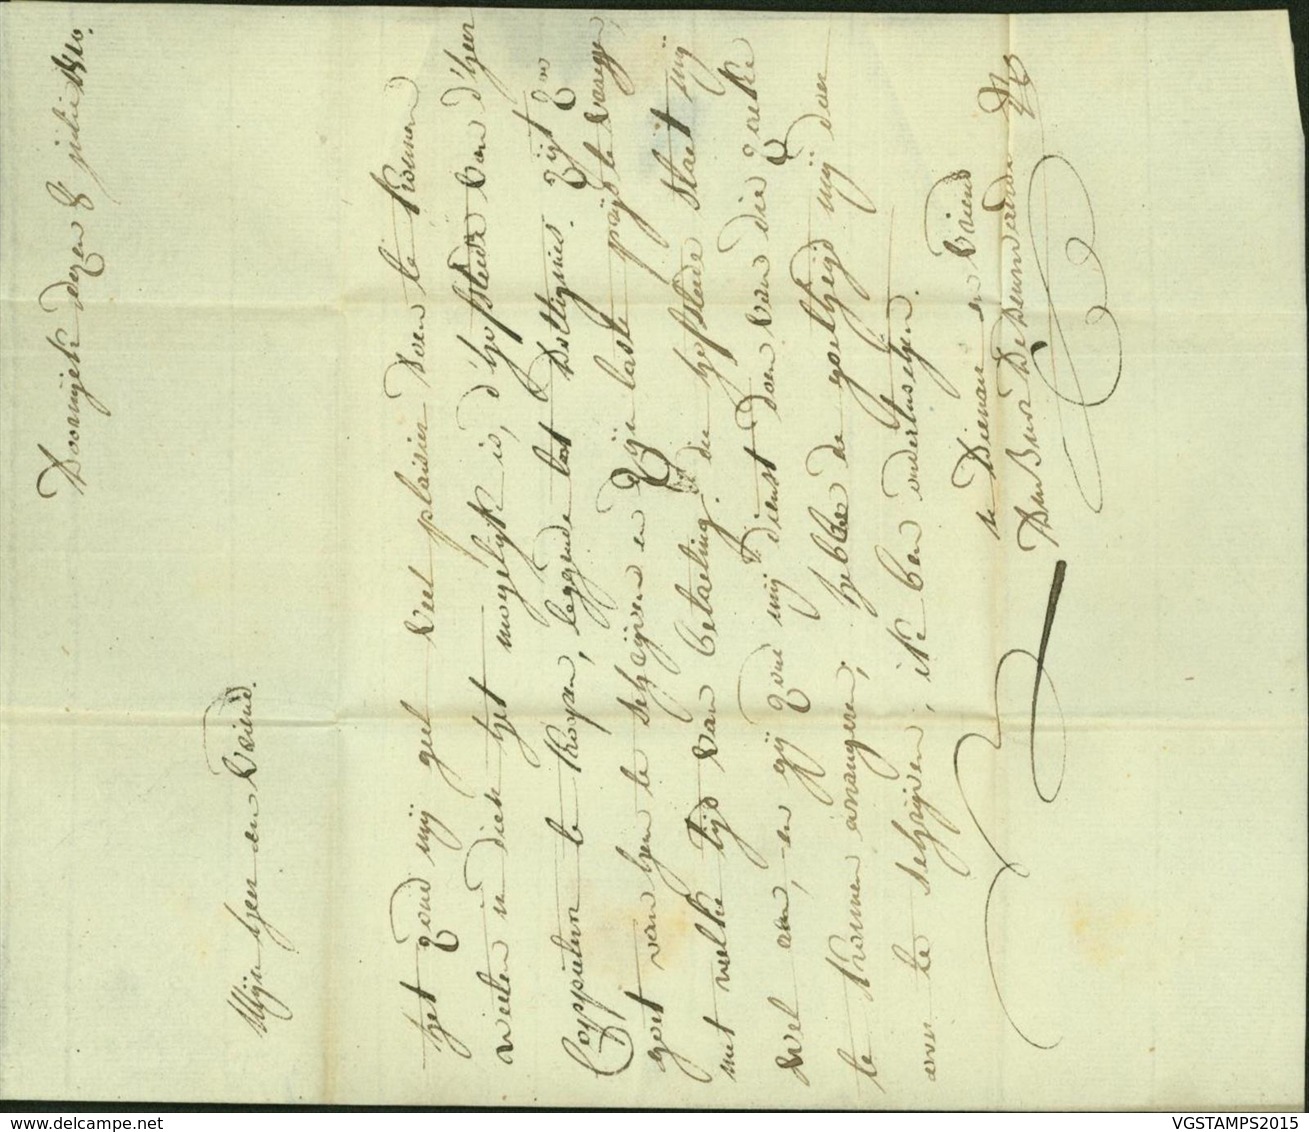 Doornyck dezen 8 julii 1810.
Mijn heer en Vriend.
het zoud mij geel veel plaisier doen te konnen
weeten u dick het mogelyk is, d'hofstede van d'heer
te koopen, leggende tot Dottignies. zijt zoo
goet van hem te schrijven en zijn laste prijs te vragen
met welke tijd van betaeling. die hofstede staet mij
wel aen, en gij zoud mij dienst doen van die zaeke
te konnen arrangeren; hebbe de goetheijd mij daer
over te schrijven, ik ben ondertusschen.
u Dienaer en Vriend
delcampe.net
VGSTAMPS2015